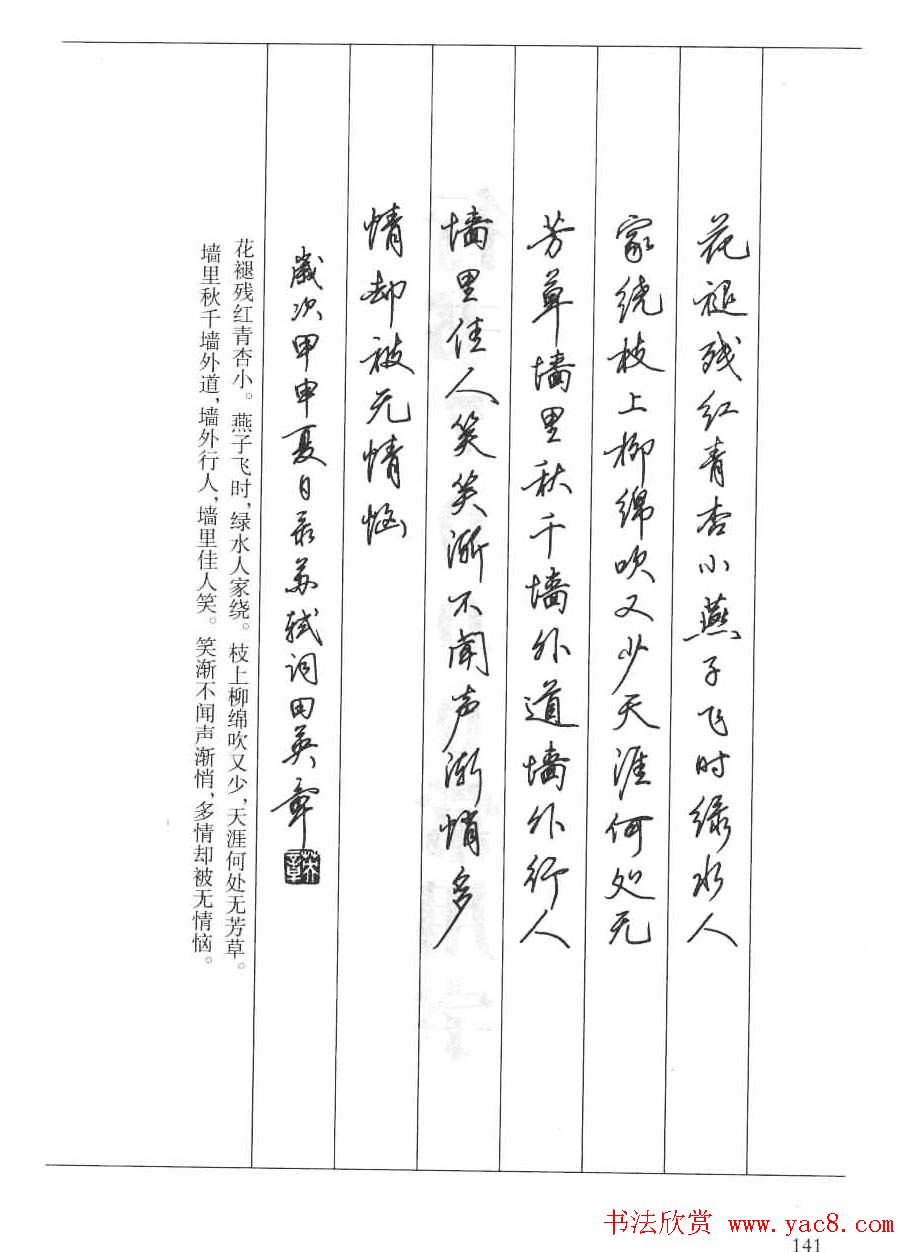 花褪残红青杏小燕子飞时绿水人
家绕枝上柳绵吹又少天涯何处无
芳草墙里秋千墙外道墙外行人
墙里佳人笑笑渐不闻声渐悄多
情却被无情恼
岁次甲申夏日录苏轼词田英章
英章
花褪残红青杏小。燕子飞时，绿水人家绕。枝上柳绵吹又少，天涯何处无芳草。
墙里秋千墙外道，墙外行人，墙里佳人笑。笑渐不闻声渐悄，多情却被无情恼。
书法欣赏 www.yac8.com
141